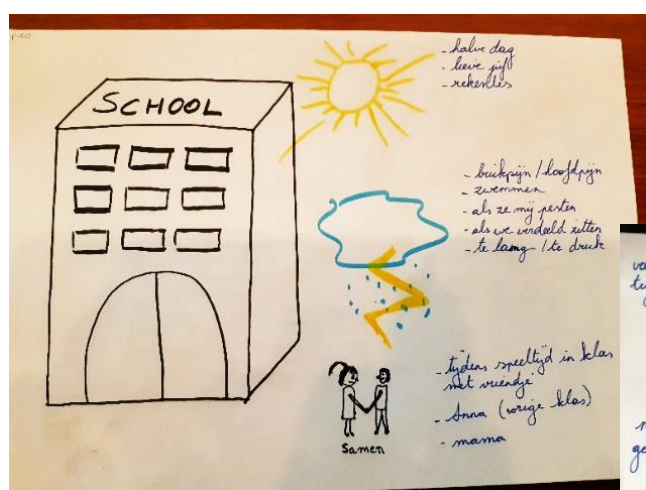 SCHOOL
- halve dag
- lieve juf
- rekenles
- buikpijn / hoofdpijn
- zwemmen
- als ze mij pesten
- als we verdeeld zitten
- te lang / te druk
- tijdens speeltijd in klas
met vriendje
- Anna (vorige klas)
- mama
Samen